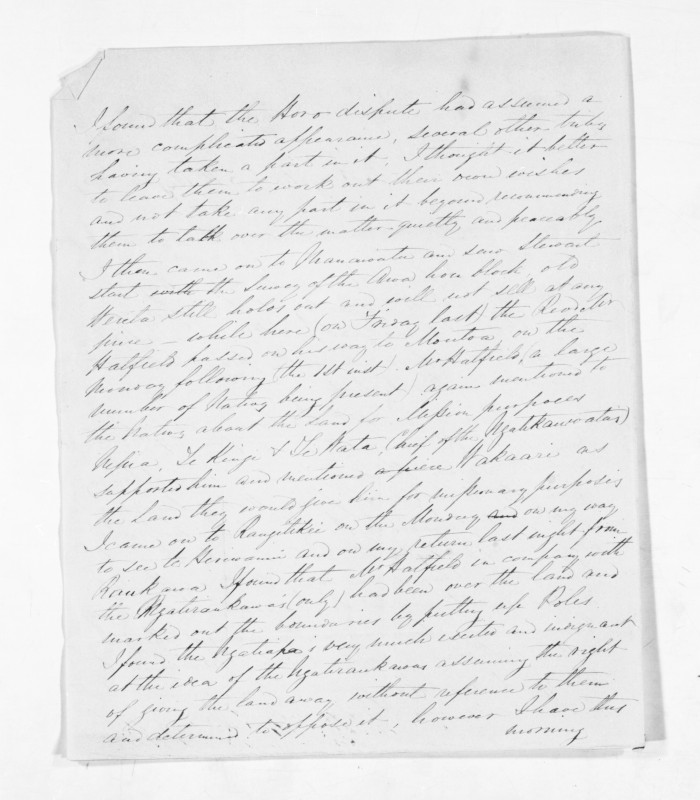 I found that the Horo dispute had assumed a
more complicated appearance, several other tribes
having taken a part in it, I thought it better
to leave them to work out their own wishes
and not take any part in it beyond recommending
them to talk over the matter quietly and peaceably
I then came on to Manawatu and saw Stewart
start with the Survey of the Awa hou block, old
still holds out and will not sell at any
price — while here (on Friday last) the Revd Mr
Hatfield passed on his way to Moutoa, on the
Monday following (the 1st inst) Mr Hatfield, (a large
number of Natives being present) again mentioned to
the Natives about the Land for Mission purposes
Te Kingi & Te Wata, Chief of the
supported him and mentioned a piece Wakaari as
the Land they would give him for missionary purposes
I came on to Rangitikei on the Monday and on my way
to see Te and on my return last night from
I found that Mr Hatfield in company with
the Ngatiraukawas (only) had been over the land and
marked out the boundaries by putting up Poles.
I found the Ngatiapa's very much excited and indignant
at the idea of the Ngatiraukawas assuming the right
of giving the land away without reference to them
and determined to oppose it, however I have this
morning